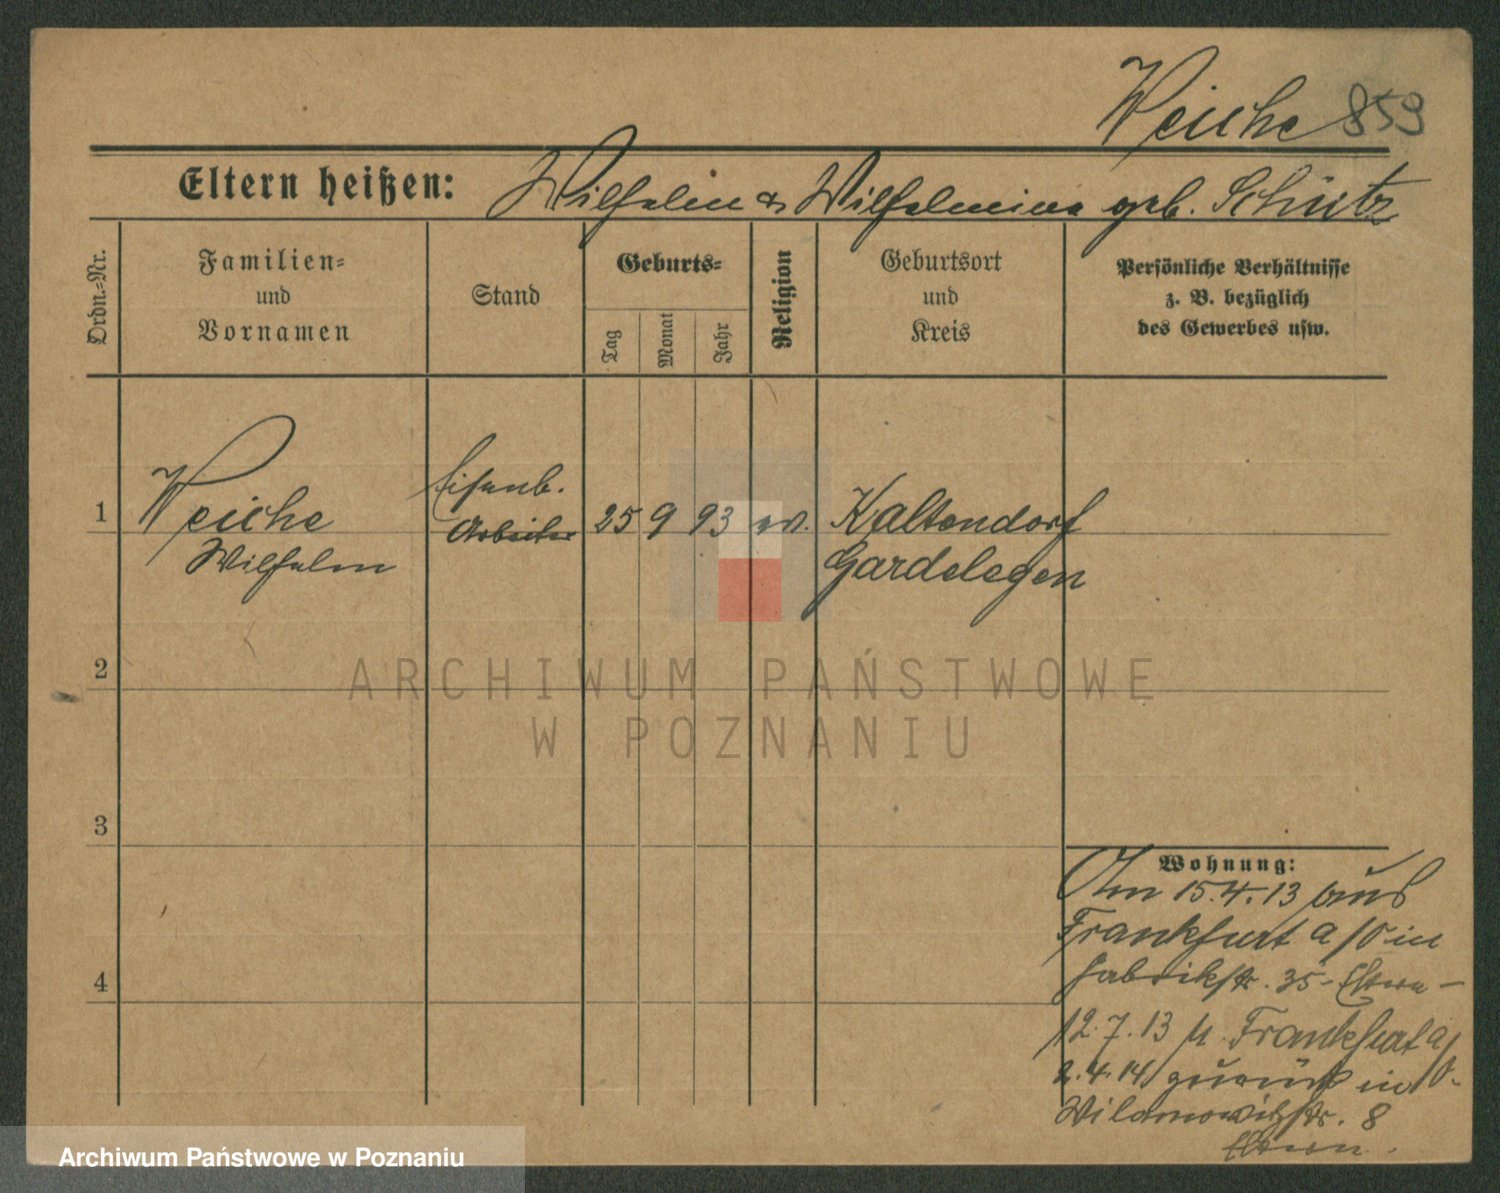 Weiche 859
Eltern heißen: Wilhelm & Wilhelmine geb. Schütz
Ordn.=Nr.
Familien=
und
Vornamen
Stand
Geburts=
Tag
Monat
Jahr
Religion
Geburtsort
und
Kreis
Persönliche Verhältnisse
z. B. bezüglich
des Gewerbes usw.
1
Weiche
Wilhelm
Eisenb.
Arbeiter
25 9 93 ev.
Kaltendorf
Gardelegen
2
3
4
Wohnung:
Am 15.4.13 aus
Frankfurt a/O in
Fabrikstr. 35 - Eltern -
12.7.13 n. Frankfurt a/O.
2.4.14 zurück in
Wilamowitzstr. 8
Eltern.
ARCHIWUM PAŃSTWOWE
W POZNANIU
Archiwum Państwowe w Poznaniu